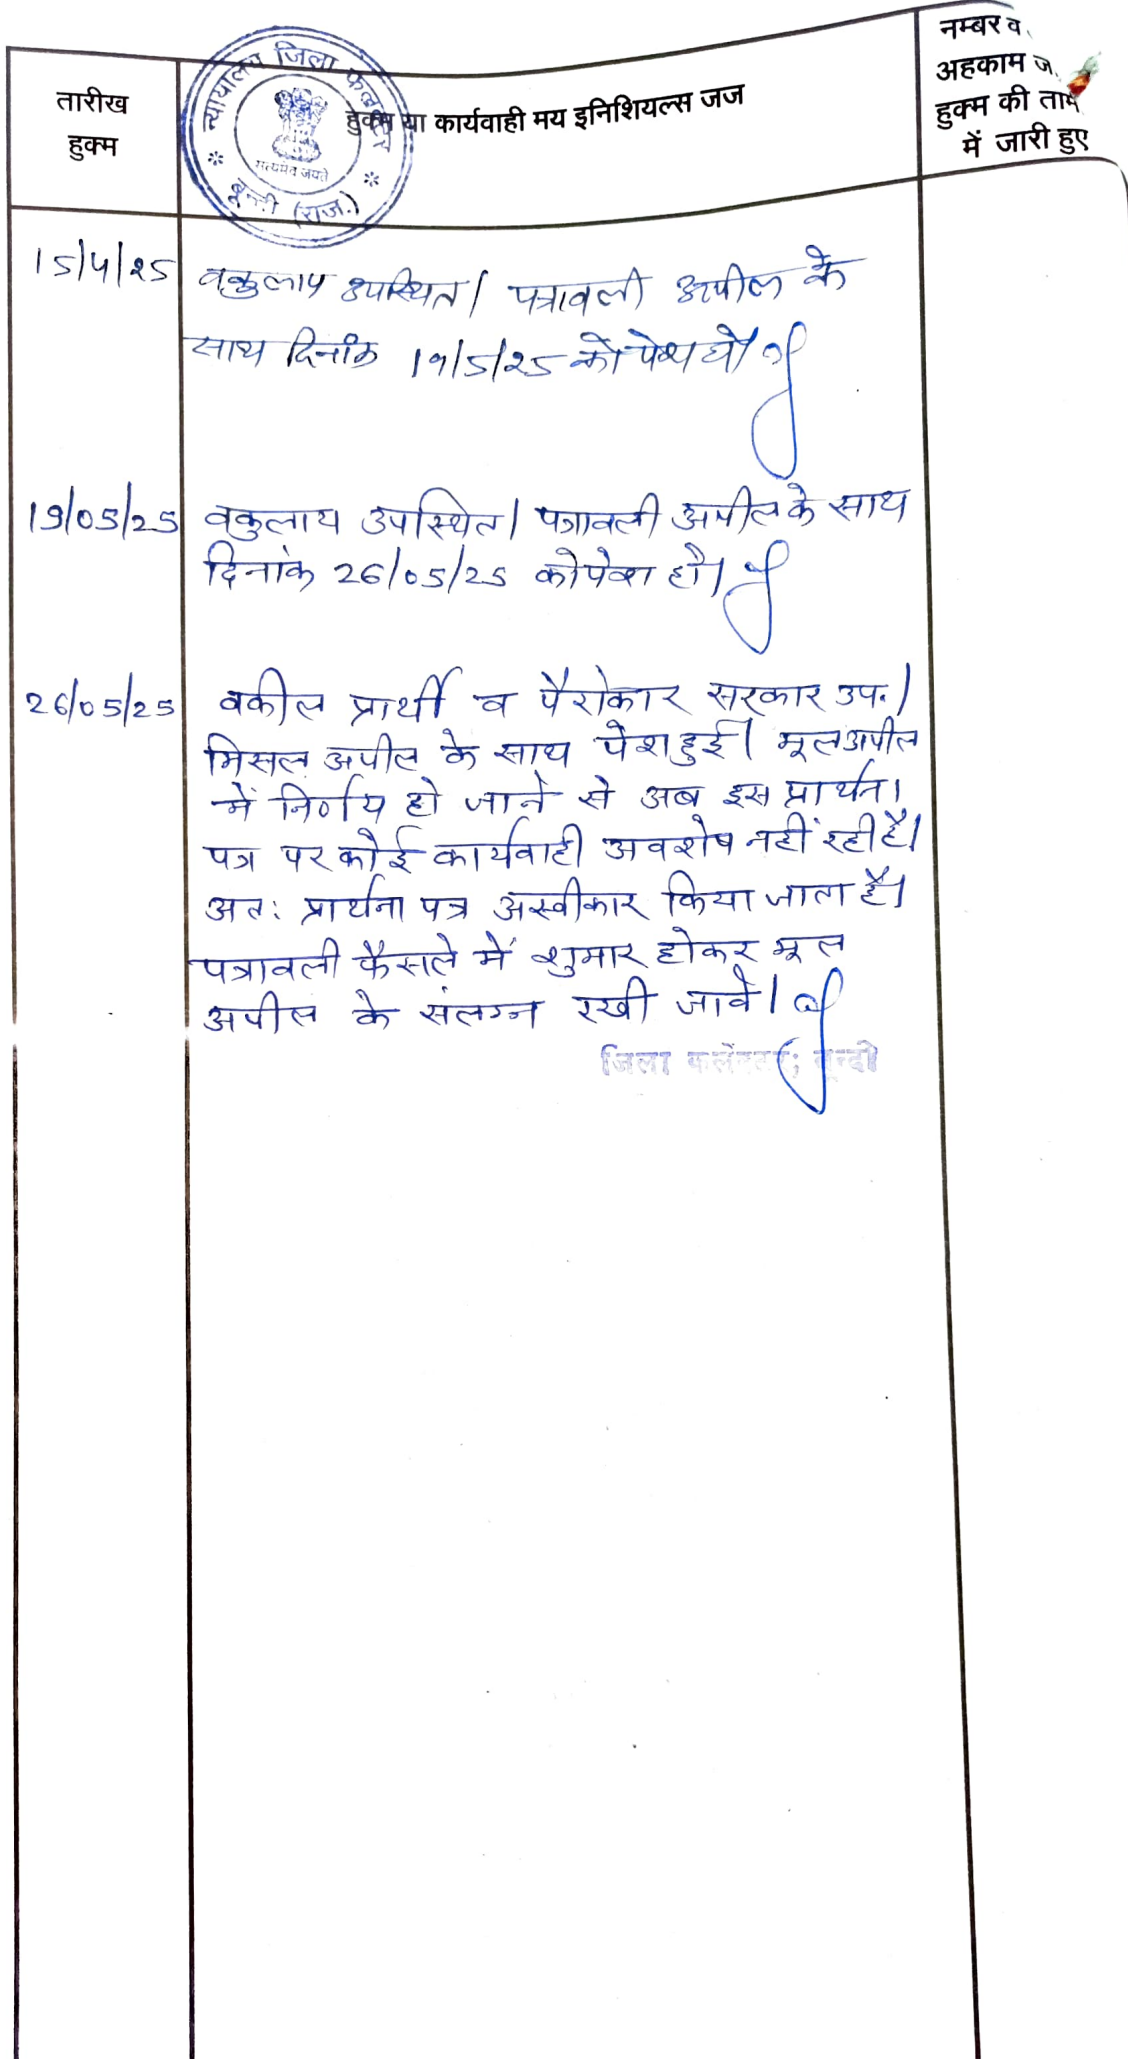 तारीख
हुक्म
न्यायालय जिला कलक्टर
सत्यमेव जयते
बून्दी (राज.)
हुक्म या कार्यवाही मय इनिशियल्स जज
नम्बर व
अहकाम ज.
हुक्म की ताम
में जारी हुए
15/4/25 वकुलाय उपस्थित। पत्रावली अपील के
साथ दिनांक 19/5/25 को पेश हो।
19/05/25 वकुलाय उपस्थित। पत्रावली अपील के साथ
दिनांक 26/05/25 को पेश हो।
26/05/25 वकील प्रार्थी व पैरोकार सरकार उप.।
मिसल अपील के साथ पेश हुई। मूल अपील
में निर्णय हो जाने से अब इस प्रार्थना
पत्र पर कोई कार्यवाही अवशेष नहीं रही है।
अत: प्रार्थना पत्र अस्वीकार किया जाता है।
पत्रावली फैसले में शुमार होकर मूल
अपील के संलग्न रखी जावे।
जिला कलेक्टर; बून्दी